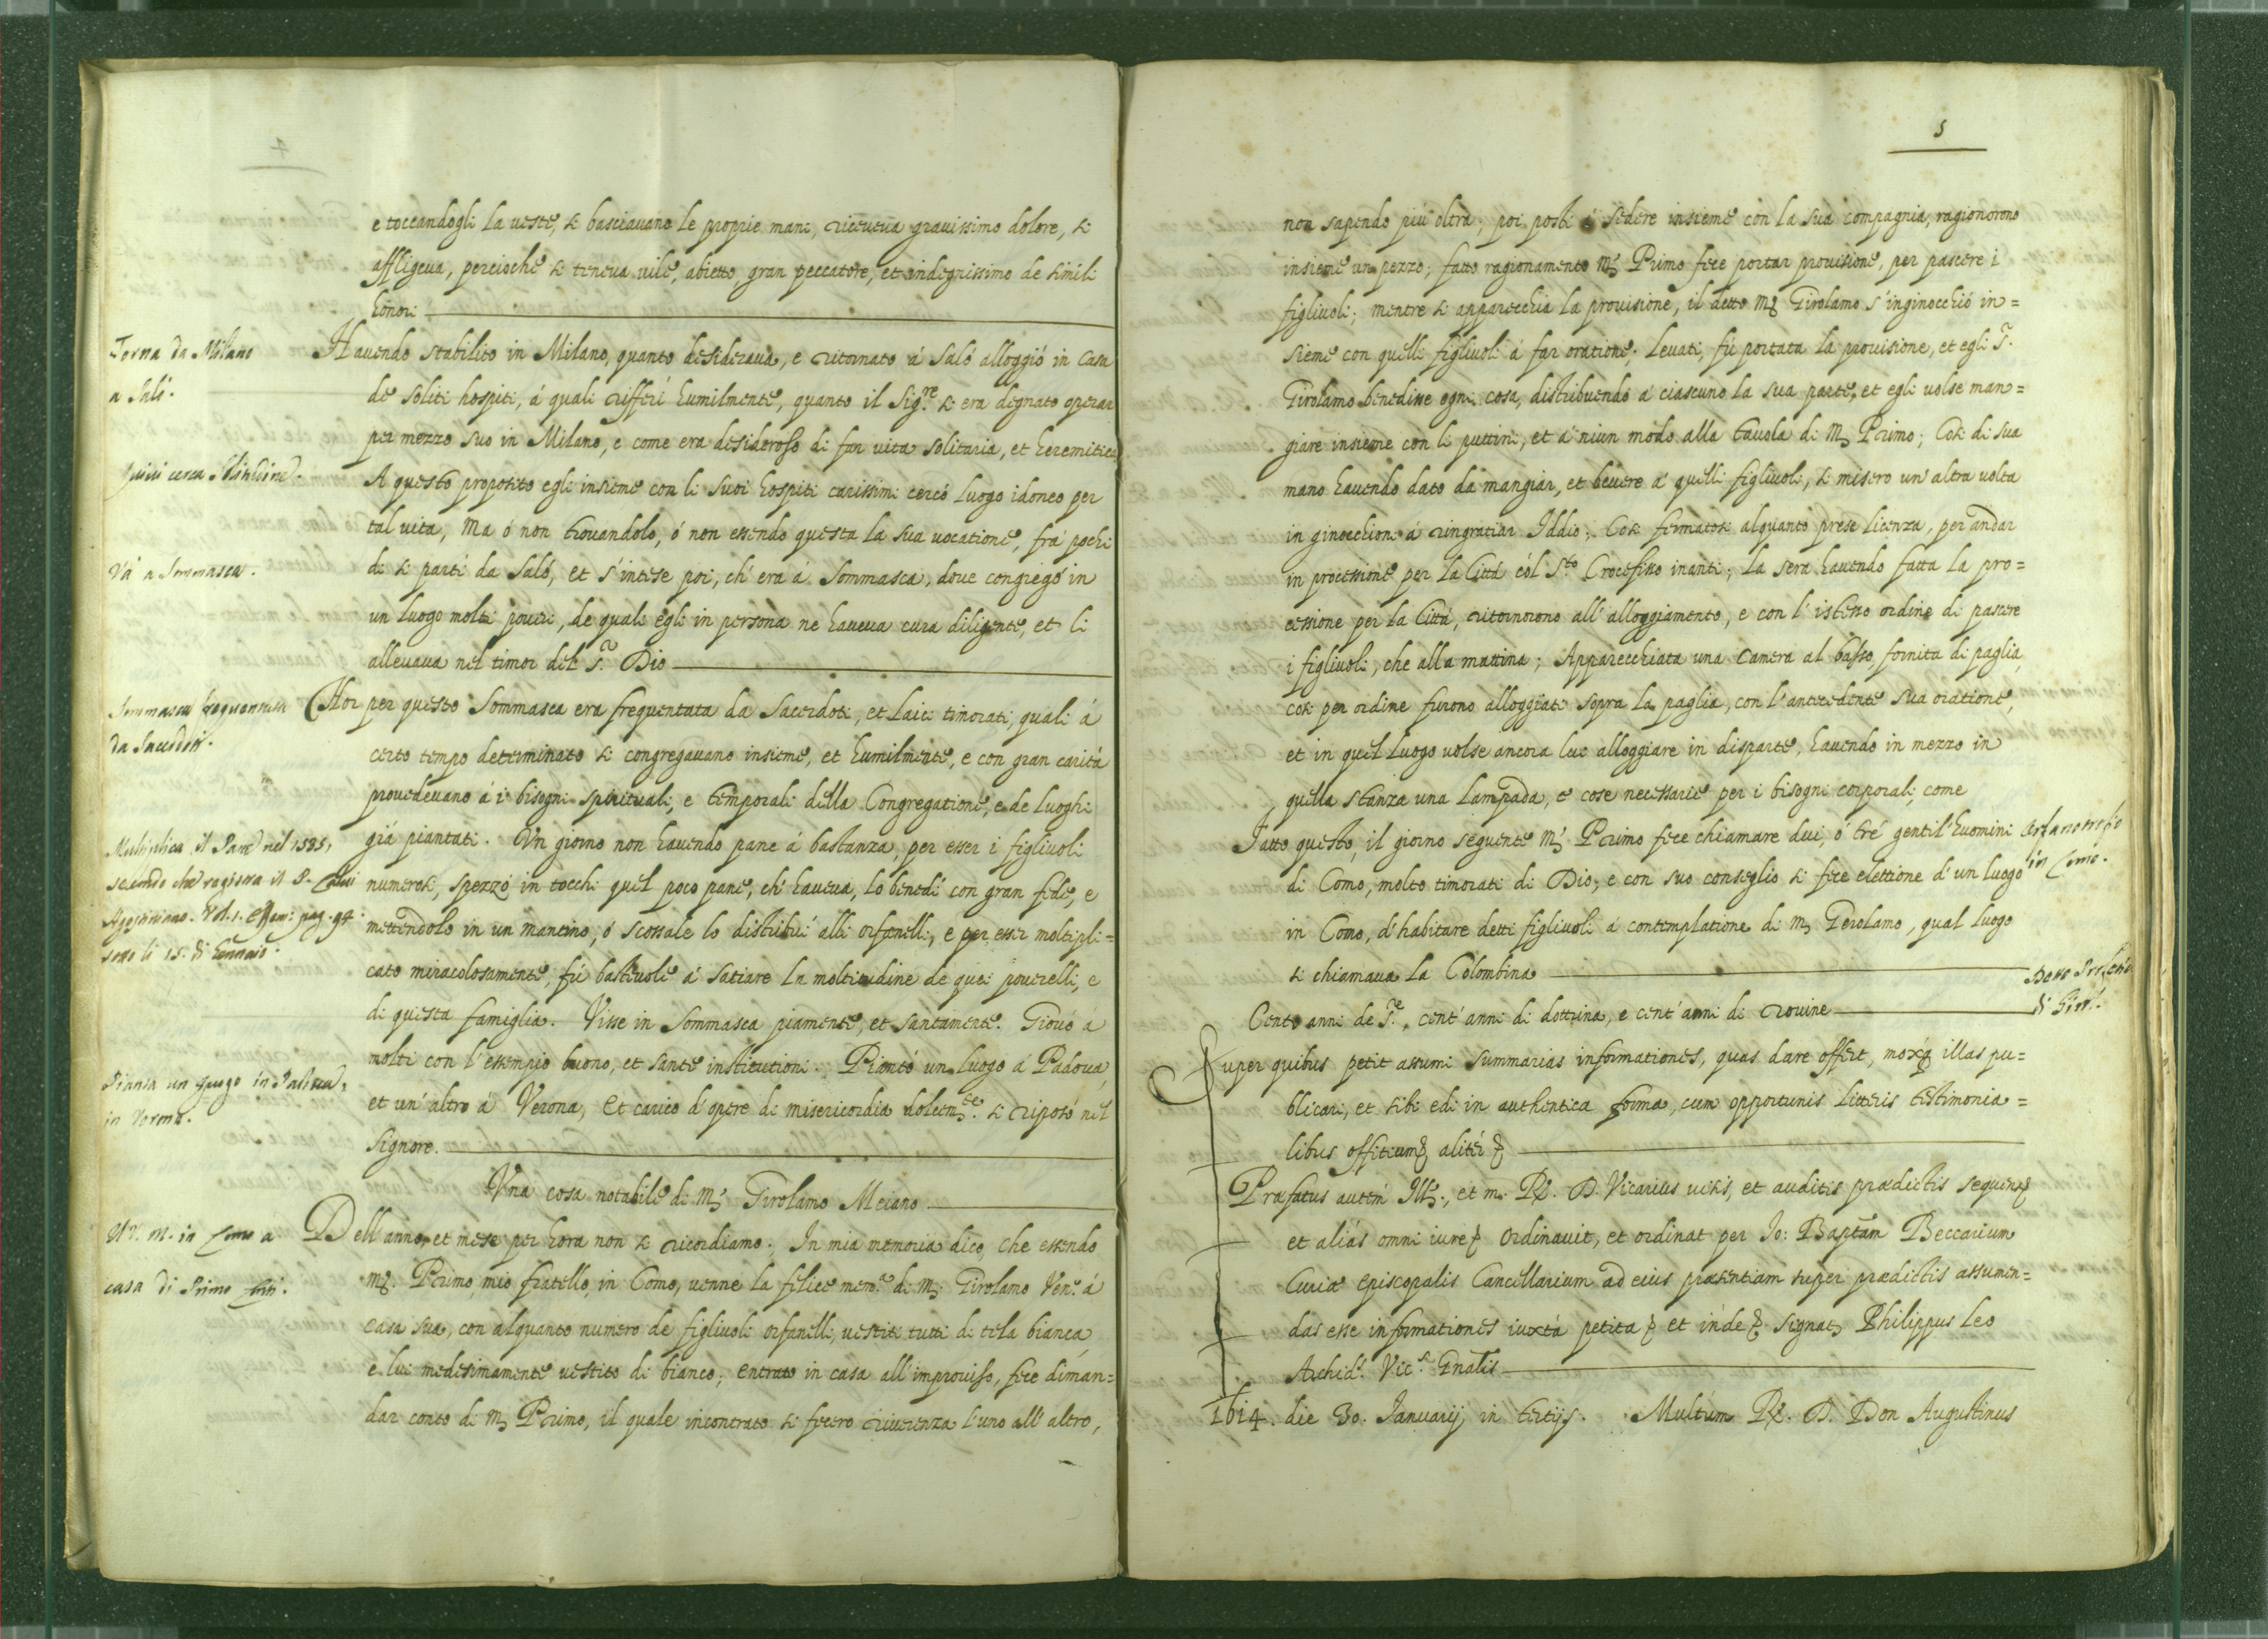 e toccandogli la veste, si basciavano le proprie mani, riceveva gravissimo dolore, si
affligeva, percioche si teneva vile, abietto, gran peccatore, et indegnissimo de simili
honori
Torna da Milano
a Salò.
Havendo stabilito in Milano, quanto desiderava, e ritornato á Saló alloggió in casa
de soliti hospiti, á quali rifferí humilmente, quanto il Sig.re si era degnato operar
per mezzo suo in Milano, e come era desideroso di far vita solitaria, et heremitica
Quivi cerca solitudine.
A questo proposito egli insieme con li suoi hospiti carissimi cercó luogo idoneo per
tal vita, Ma ó non trovandolo, ó non essendo questa la sua vocatione, frá pochi
Và a Sommasca.
di si partí da Saló, et s'intese poi, ch'era á Sommasca, dove congregó in
un luogo molti poveri, de quali egli in persona ne haveva cura diligente, et li
allevava nel timor del S.r Dio
Sommasca frequentata
da Sacerdoti.
Hor per questo Sommasca era frequentata da Sacerdoti, et Laici timorati, quali á
certo tempo determinato si congregavano insieme, et humilmente, e con gran caritá
provedevano á i bisogni spirituali, e temporali della Congregatione, e de luoghi
giá piantati. Un giorno non havendo pane á bastanza, per esser i figlivoli
Multiplica il Pane nel 1535,
secondo che ragiona il P.
Agostiniano. Vol. 1. Essam: pag. 94.
sotto li 15. di Gennaio.
numerosi, spezzó in tocchi quel poco pane, ch'haveva, lo benedí con gran fede, e
mettendolo in un mantino, ó scossale lo distribuí alli orfanelli, e per esser moltipli=
cato miracolosamente, fú bastevole á satiare la moltitudine de quei poverelli, e
di questa famiglia. Visse in Sommasca piamente, et santamente. Giovó á
molti con l'essempio buono, et sante institutioni. Piantó un luogo á Padova,
Pianta un luogo in Padova,
in Verona.
et un'altro á Verona, et carico d'opere di misericordia dolcem.te si riposó nel
Signore.
Una cosa notabile di M. Girolamo Meiano
Và M. in Como a
casa di Primo
Dell'anno, et mese per hora non si ricordiamo. In mia memoria dico, che essendo
M. Primo, mio fratello, in Como, venne la felice mem.a di M. Girolamo Ven.o á
casa sua, con alquanto numero de figlivoli orfanelli, vestiti tutti di tela bianca,
e lui medesimamente vestito di bianco; entrato in casa all'improviso, fece diman=
dar conto di M. Primo, il quale incontrato si fecero riverenza l'uno all'altro,
5
non sapendo piú oltra; poi posti á sedere insieme con la sua compagnia, ragionorono
insieme un pezzo; fatto ragionamento M. Primo fece portar provisione, per pascere i
figlivoli; mentre si apparecchia la provisione, il detto M. Girolamo s'inginocchió in=
sieme con quelli figlivoli á far oratione. Levati, fú portata la provisione, et egli S.
Girolamo benedisse ogni cosa, distribuendo á ciascuno la sua parte, et egli volse man=
giare insieme con li puttini, et á niun modo alla tavola di M. Primo; Cosi di sua
mano havendo dato da mangiar, et bevere á quelli figlivoli, si misero un'altra volta
in ginocchioni á ringratiar Iddio; Cosi fermatosi alquanto prese licenza, per andar
in processione per la Cittá cól S.to Crocefisso inanti; La sera havendo fatta la pro=
cessione per la Cittá, ritornorono all'alloggiamento, e con l'istesso ordine di pascere
i figlivoli, che alla mattina; Apparecchiata una camera al basso, fornita di paglia,
cosi per ordine furono alloggiati sopra la paglia, con l'antecedente sua oratione,
et in quel luogo volse ancora lui alloggiare in disparte, havendo in mezzo in
quella stanza una lampada, e cose necessarie per i bisogni corporali, come
Fatto questo, il giorno seguente M. Primo fece chiamare dui, ó tré gentil'huomini
Orfanotrofio
in Como.
di Como, molto timorati di Dio, e con suo conseglio si fece elettione d'un luogo
in Como, d'habitare detti figlivoli á contemplatione di M. Gerolamo, qual luogo
si chiamava la Colombina
Detto Profetico
di Girol.
Cento anni de S.te, cent'anni di dottrina, e cent'anni di rovine
Super quibus petit assumi summarias informationes, quas dare offert, moxq illas pu=
blicari, et sibi edi in authentica forma, cum opportunis litteris testimonia=
libus officium aliter
Præfatus autem Ill., et m. R. D. Vicarius visis, et auditis prædictis sequen
et aliás omni iure ordinavit, et ordinat per Jo: Baptam Beccarium
Curiæ Episcopalis Cancellarium ad eius præsentiam super prædictis assumen=
das esse informationes iuxtá petita et inde signat Philippus Leo
Archid. Vic.s Gnalis
1614. die 30. Januarij in tertijs. Multúm R. D. Don Augustinus